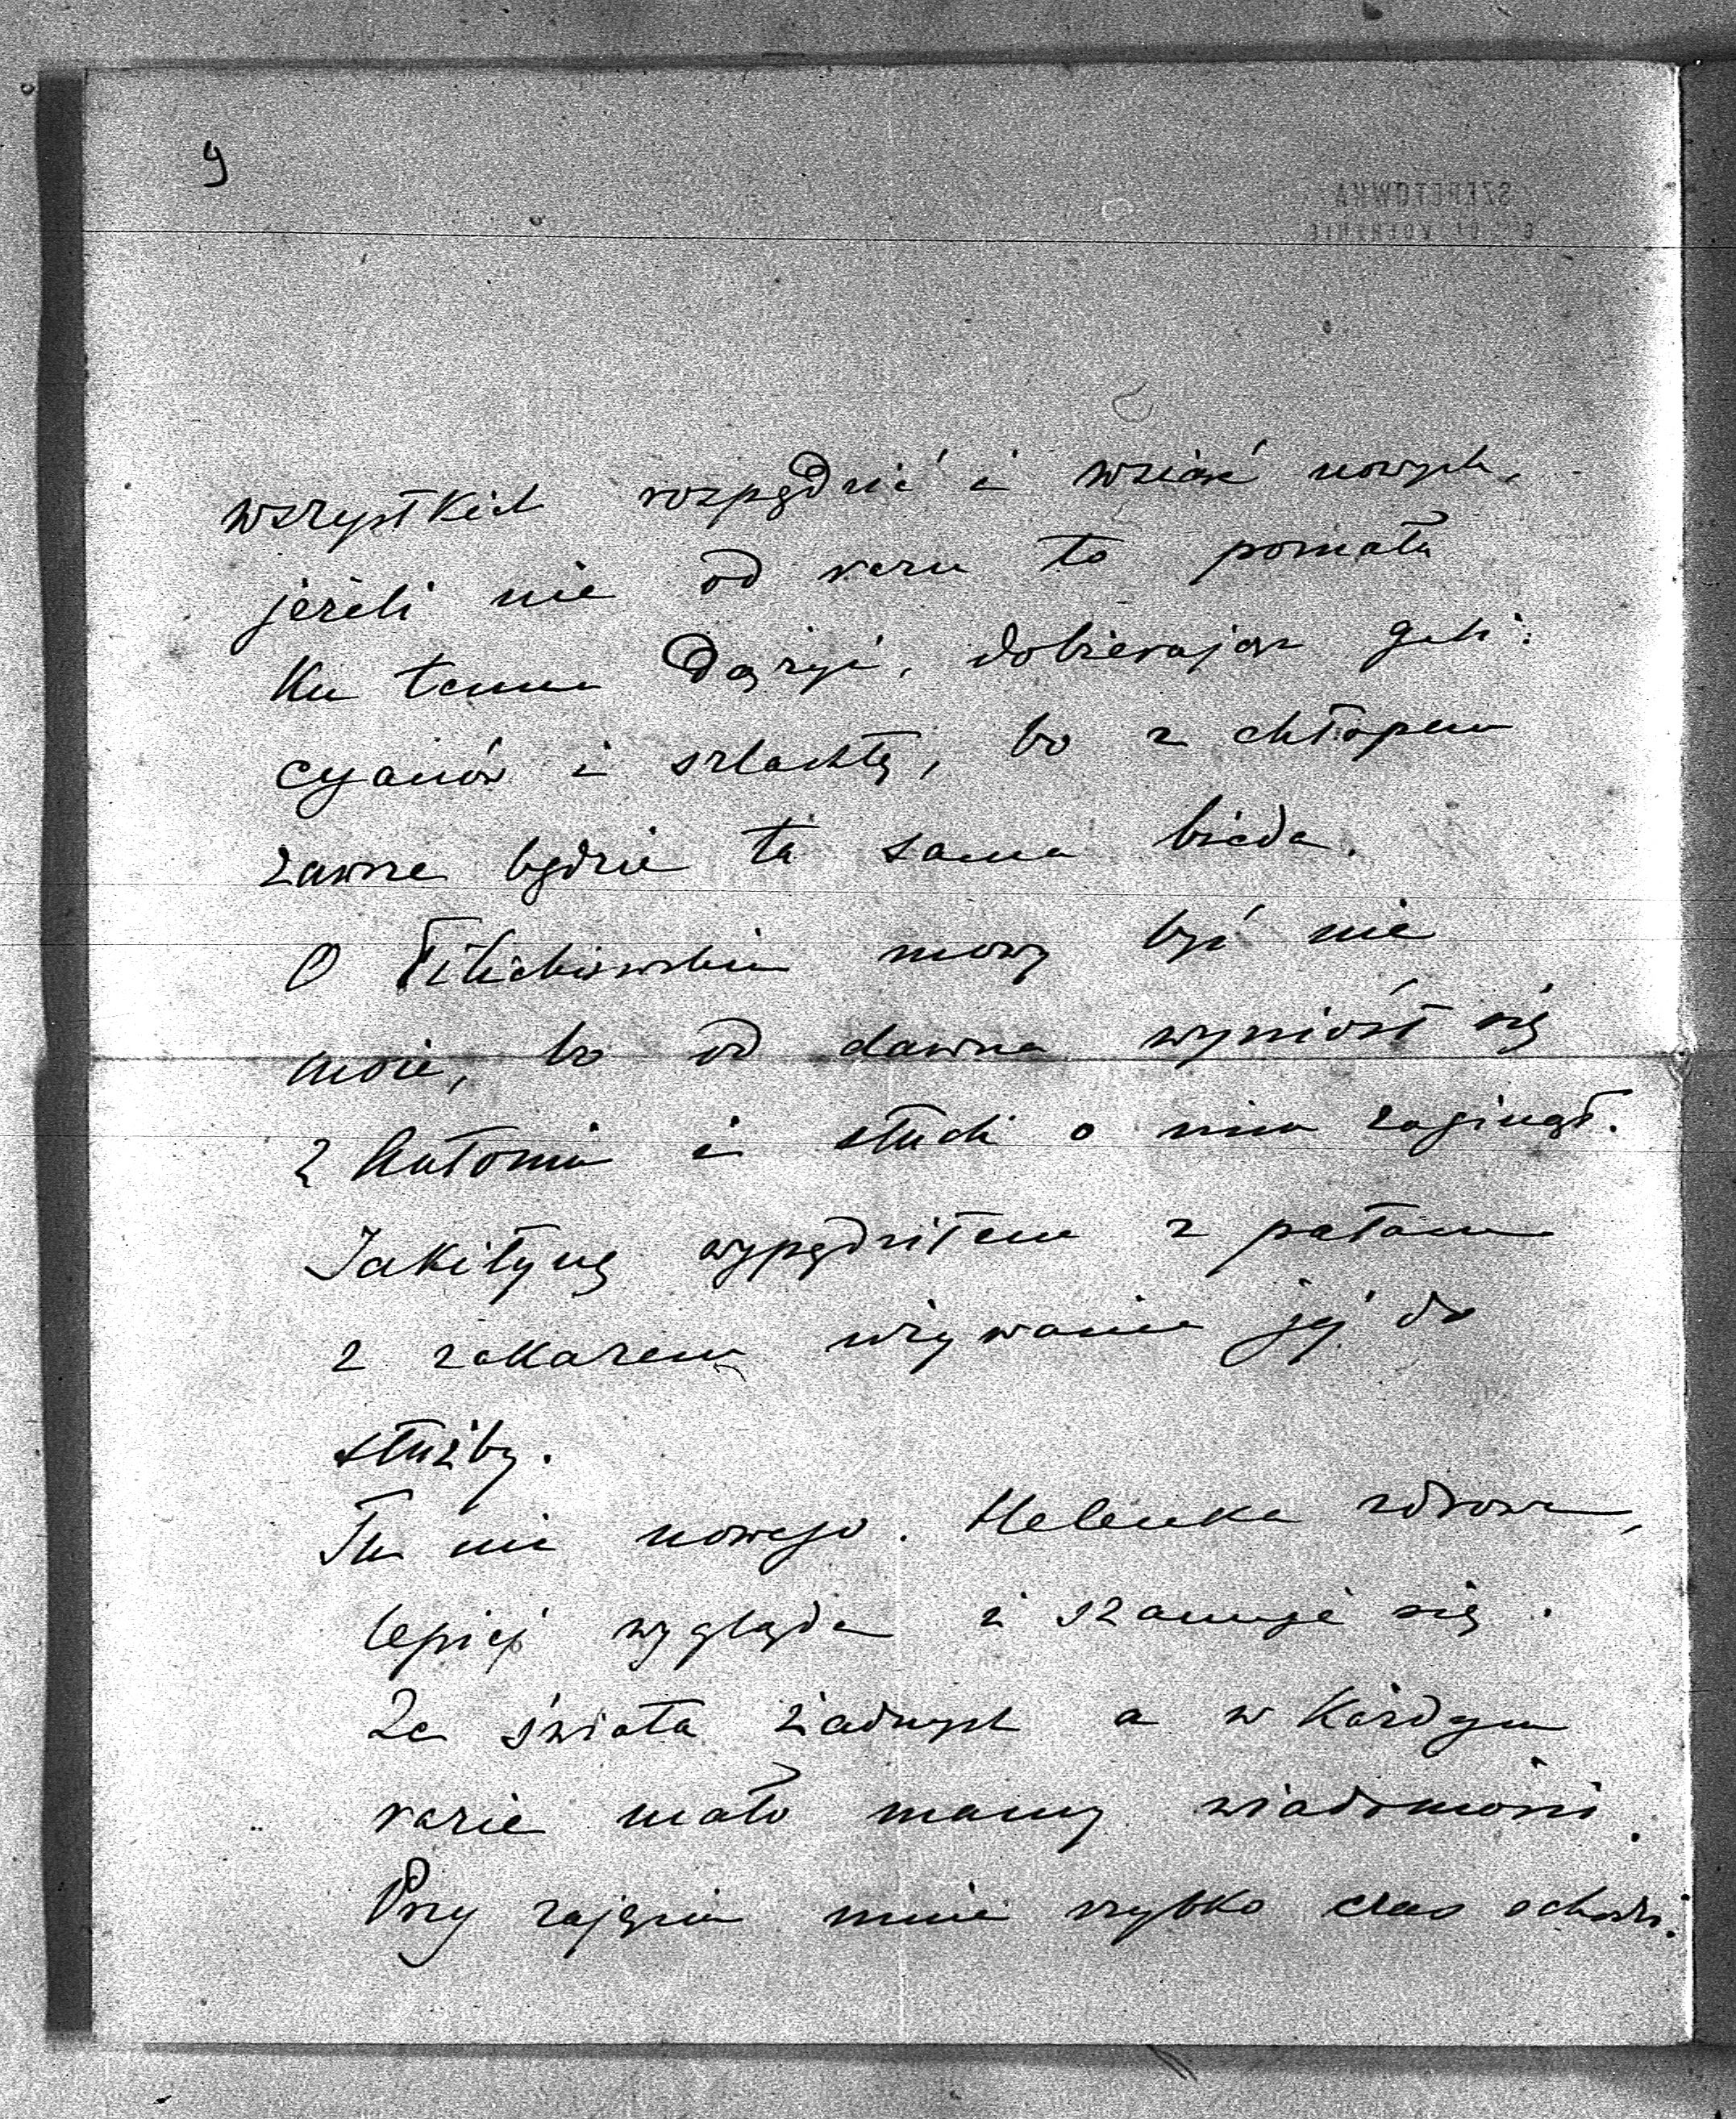 9
SZEPETOWKA
wszystkich rozpędzić i wziąść nowych,
jeżeli nie od razu to pomału
ku temu dążyć, dobierając gali:
cyanów i szlachtę, bo z chłopem
zawsze będzie ta sama bieda.
O mowy być nie
może, bo od dawna wyniósł się
z i słuch o nim zaginął.
Jakitynę wypędziłem z pałacu
z zakazem używania jej do
służby.
Tu nic nowego. Helenka zdrowa,
lepiej wygląda i szanuje się.
Ze świata żadnych a w każdym
razie mało mamy wiadomości.
Przy zajęciu mnie szybko czas schodzi.